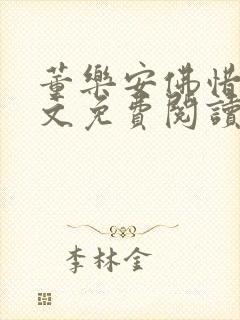 董樂安佛惜
文免費閱讀
李林金